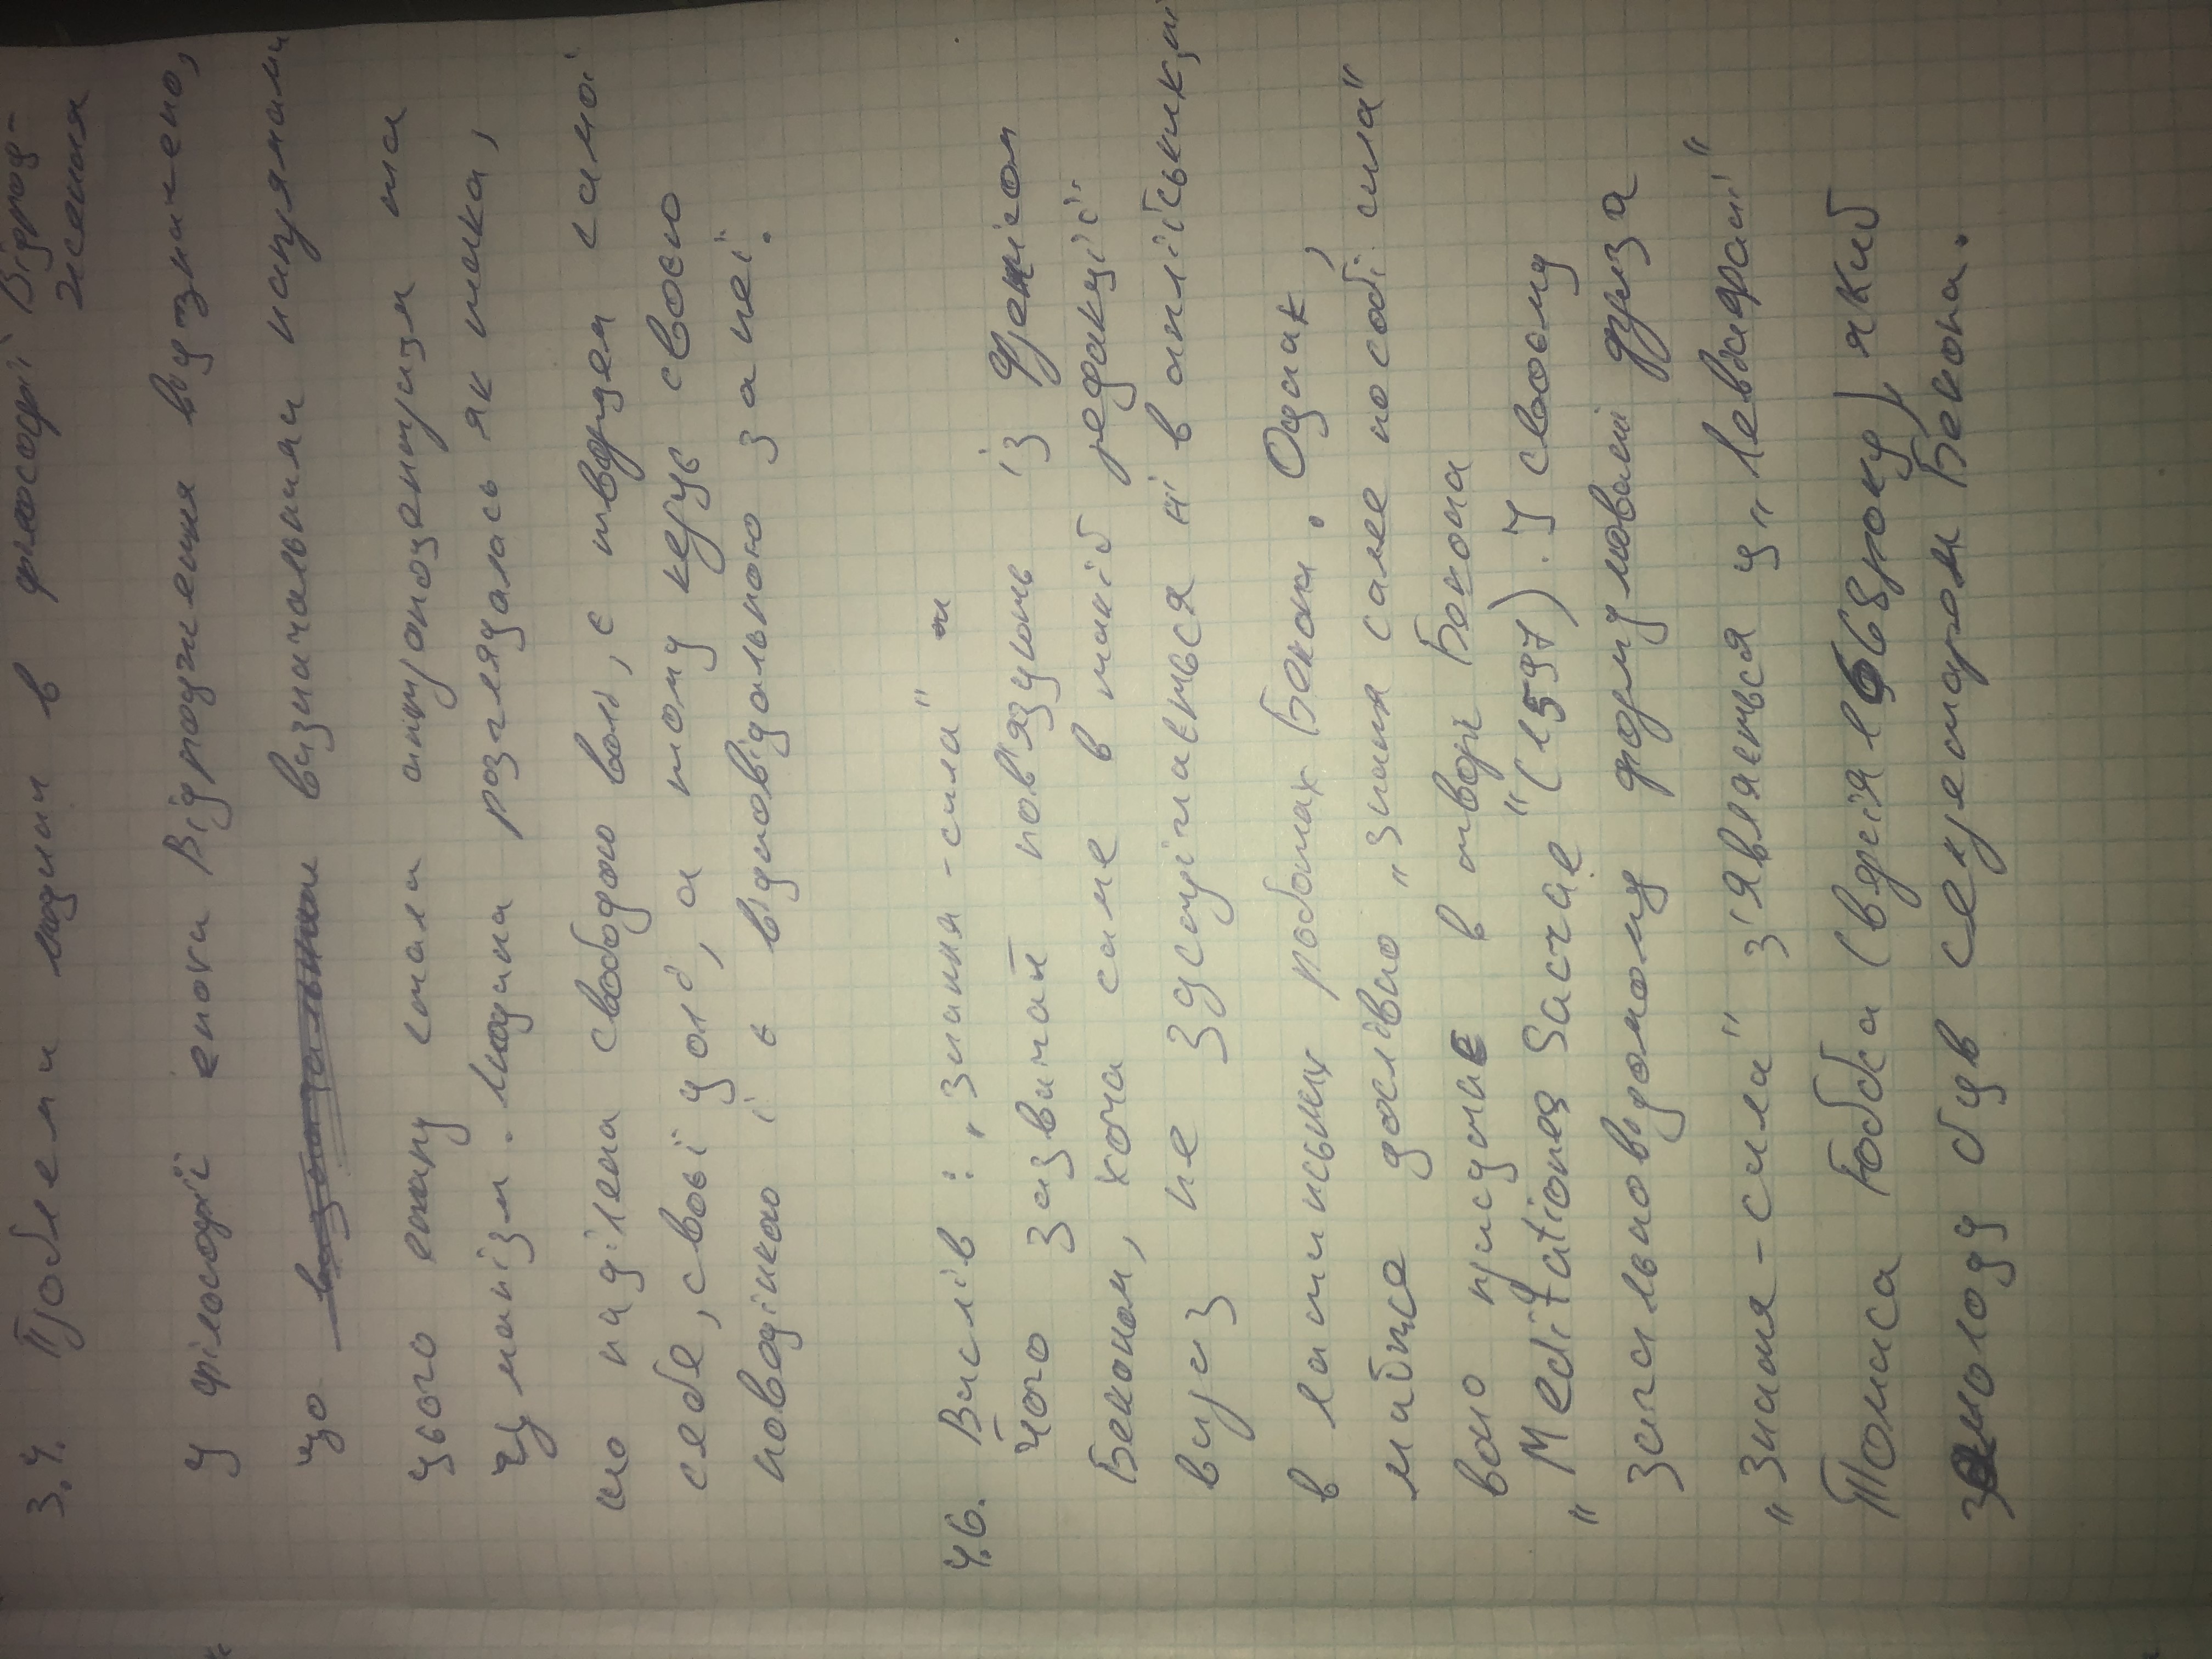 3.4. Проблеми людини в філософії Відрод-
ження
У філософії епохи Відродження відзначено,
що визначальними напрямами
цього етапу стали антропоцентризм та
гуманізм. Людина розглядалась як така,
що наділена свободою волі, є творцем самої
себе, своєї долі, а тому керує своєю
поведінкою і є відповідальною за неї.
4.6. Вислів: „Знання - сила"
Його зазвичай пов'язують із Френсісом
Беконом, хоча саме в такій редакції
вираз не здстрічається ні в англійських, ні
в латинських роботах Бекона. Однак,
майже дослівно „знання саме по собі сила"
воно присутнє в творі Бекона
„Meditationes Sacrae" (1597). У своєму
загальновідомому формулювані фраза
„Знання - сила" з'являється у „Левіафані"
Томаса Гоббса (версія 1668 року), який
замолоду був секретарем Бекона.